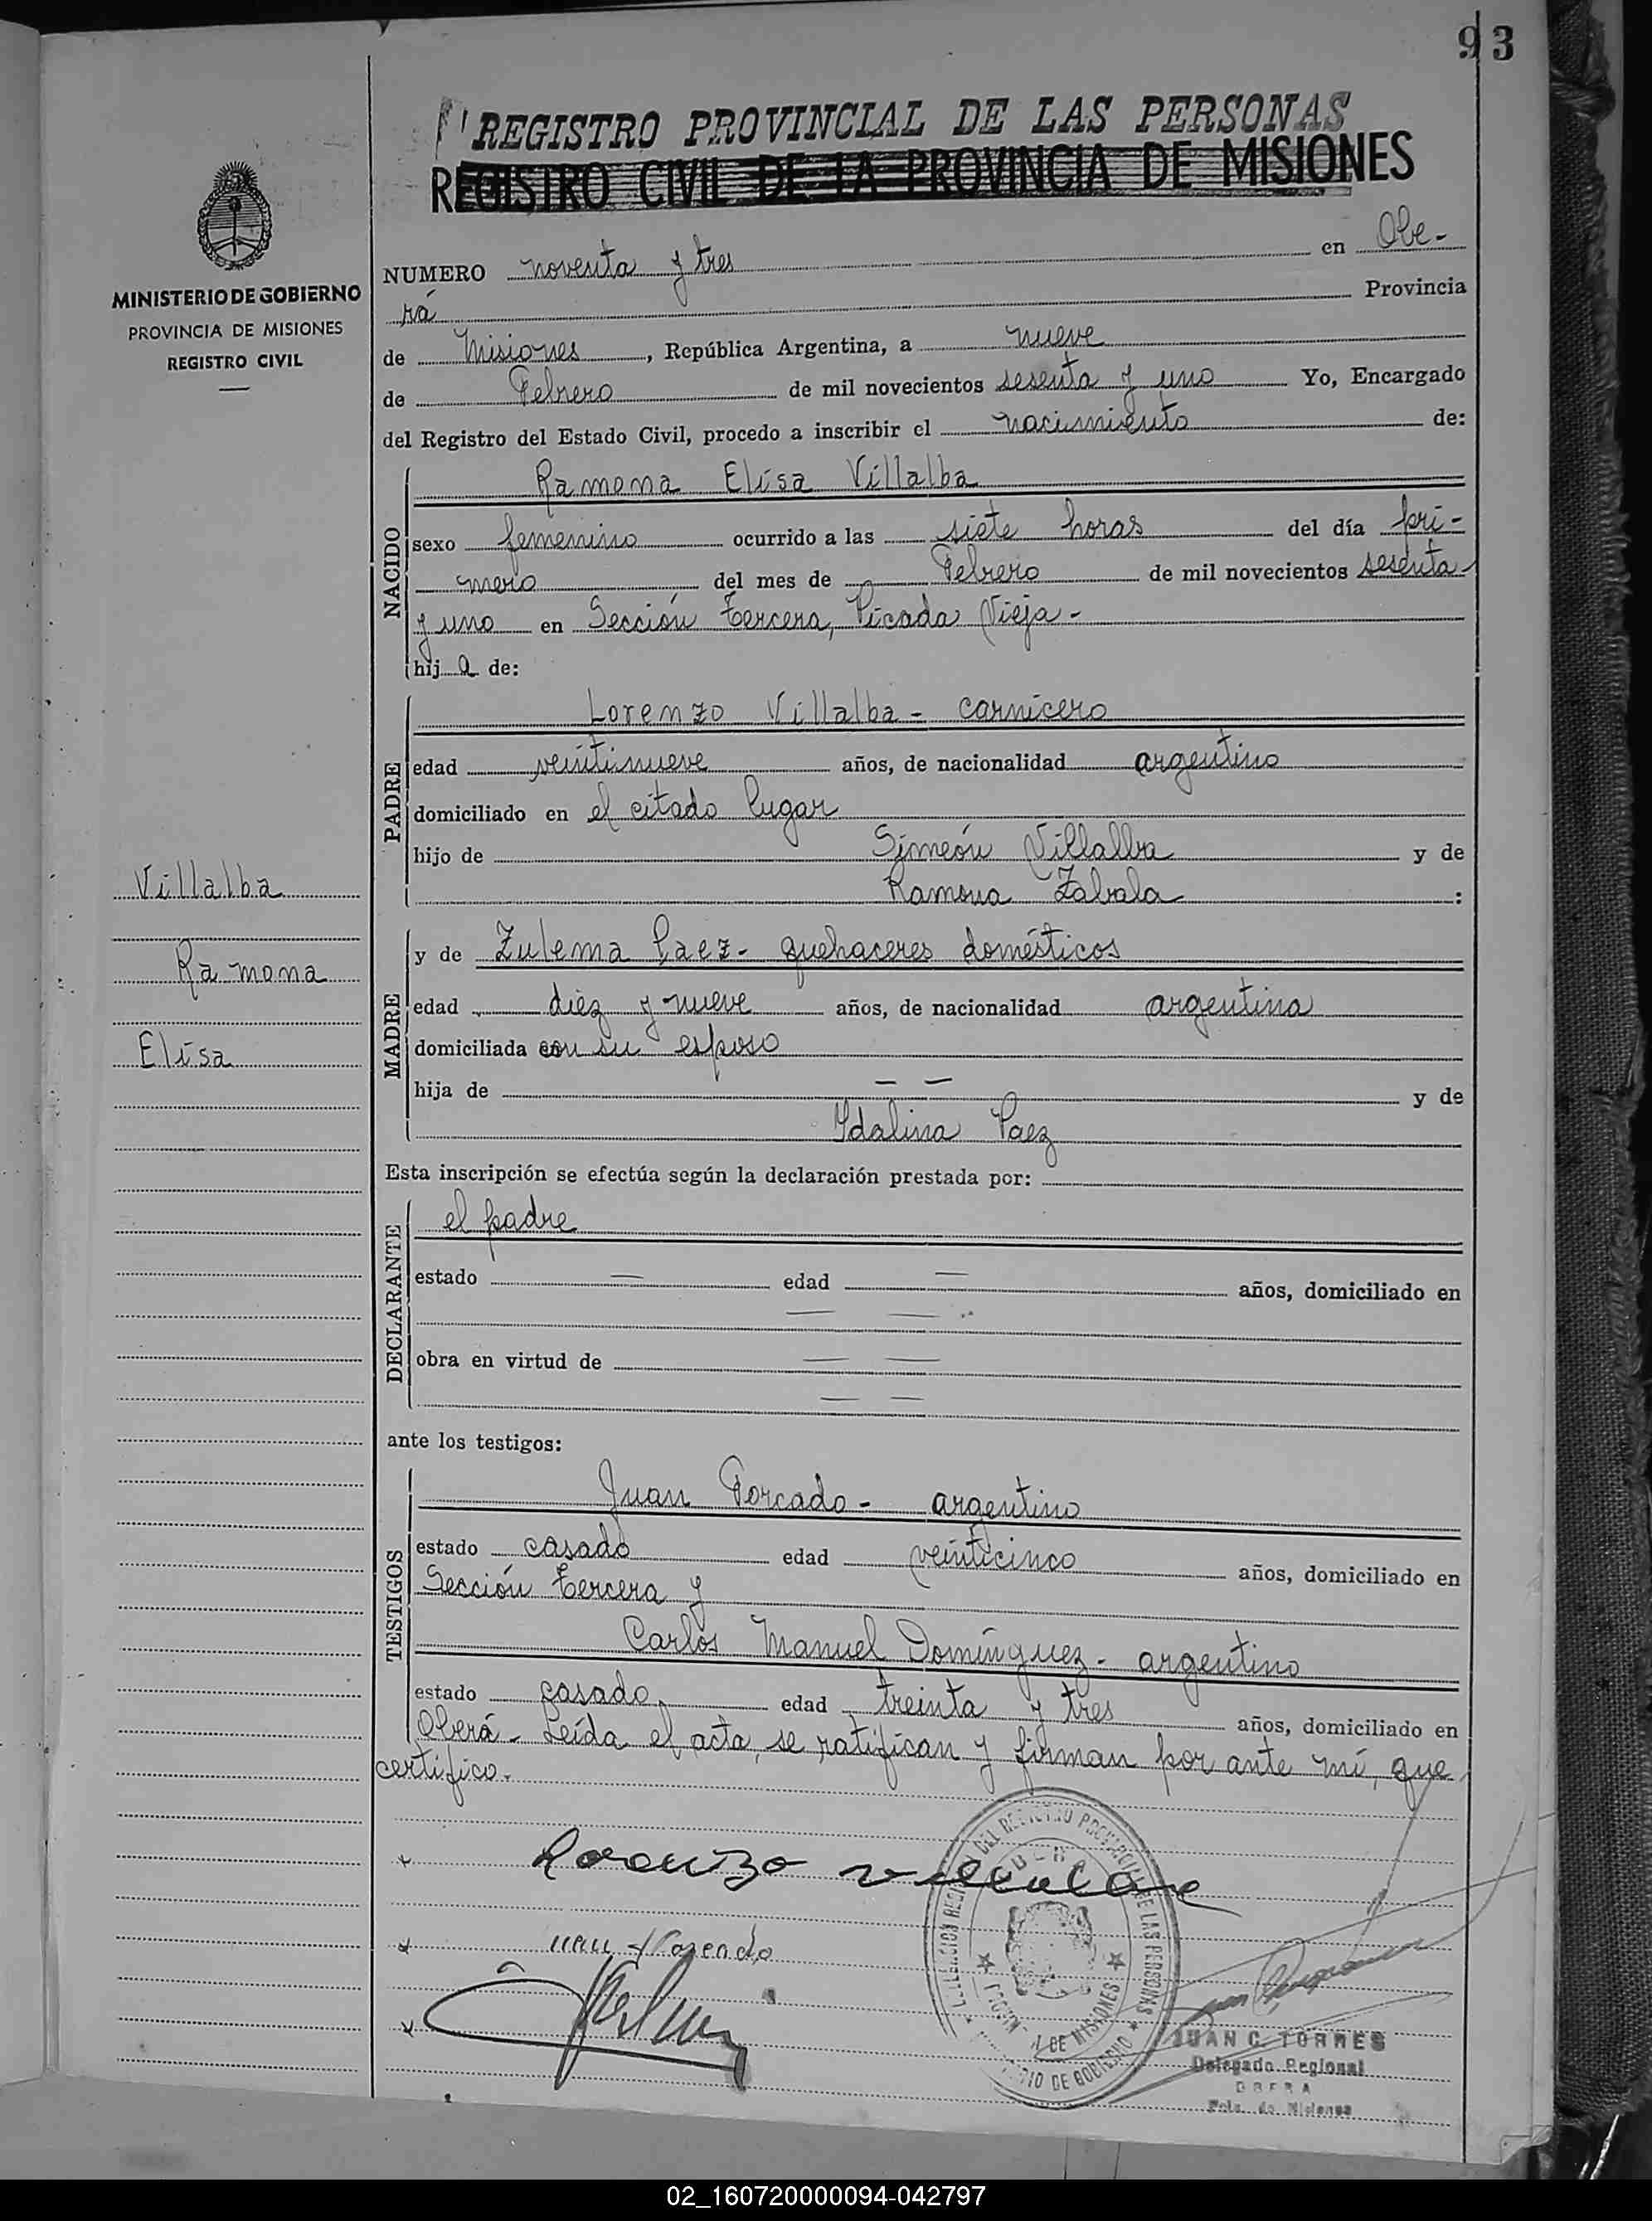 93
REGISTRO PROVINCIAL DE LAS PERSONAS
REGISTRO CIVIL DE LA PROVINCIA DE MISIONES
MINISTERIO DE GOBIERNO
PROVINCIA DE MISIONES
REGISTRO CIVIL
NUMERO noventa y tres en Obe-
rá Provincia
de Misiones, República Argentina, a nueve
de Febrero de mil novecientos sesenta y uno Yo, Encargado
del Registro del Estado Civil, procedo a inscribir el nacimiento de:
NACIDO
Ramona Elisa Villalba
sexo femenino ocurrido a las siete horas del día pri-
mero del mes de Febrero de mil novecientos sesenta
y uno en Sección tercera, Picada Vieja-
hija de:
PADRE
Lorenzo Villalba - carnicero
edad veintinueve años, de nacionalidad argentino
domiciliado en el citado lugar
hijo de Simeón Villalba y de
Ramona Zabala :
Villalba
Ramona
Elisa
MADRE
y de Zulema Paez - quehaceres domésticos
edad diez y nueve años, de nacionalidad argentina
domiciliada con su esposo
hija de — — y de
Ydalina Paez
Esta inscripción se efectúa según la declaración prestada por:
DECLARANTE
el padre
estado — edad — años, domiciliado en
— —
obra en virtud de — —
— —
ante los testigos:
TESTIGOS
Juan Forcado - argentino
estado casado edad veinticinco años, domiciliado en
Sección tercera y
Carlos Manuel Domínguez - argentino
estado casado, edad treinta y tres años, domiciliado en
Oberá - Leída el acta, se ratifican y firman por ante mí, que
certifico.
Lorenzo villalba
DE LAS PERSONAS
DE MISIONES
JUAN C. TORRES
Delegado Regional
OBERA
Pcia. de Misiones
02_160720000094-042797